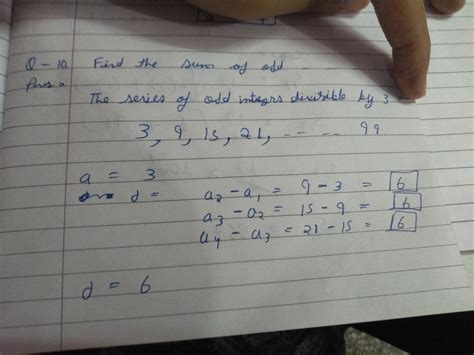 Q-10 Find the sum of odd ......
Ans= The series of odd integrs divisible by 3
3, 9, 15, 21, -- -- -- 99
a = 3
d = a2-a1 = 9-3 = 6
a3-a2 = 15-9 = 6
a4-a3 = 21-15 = 6
d = 6